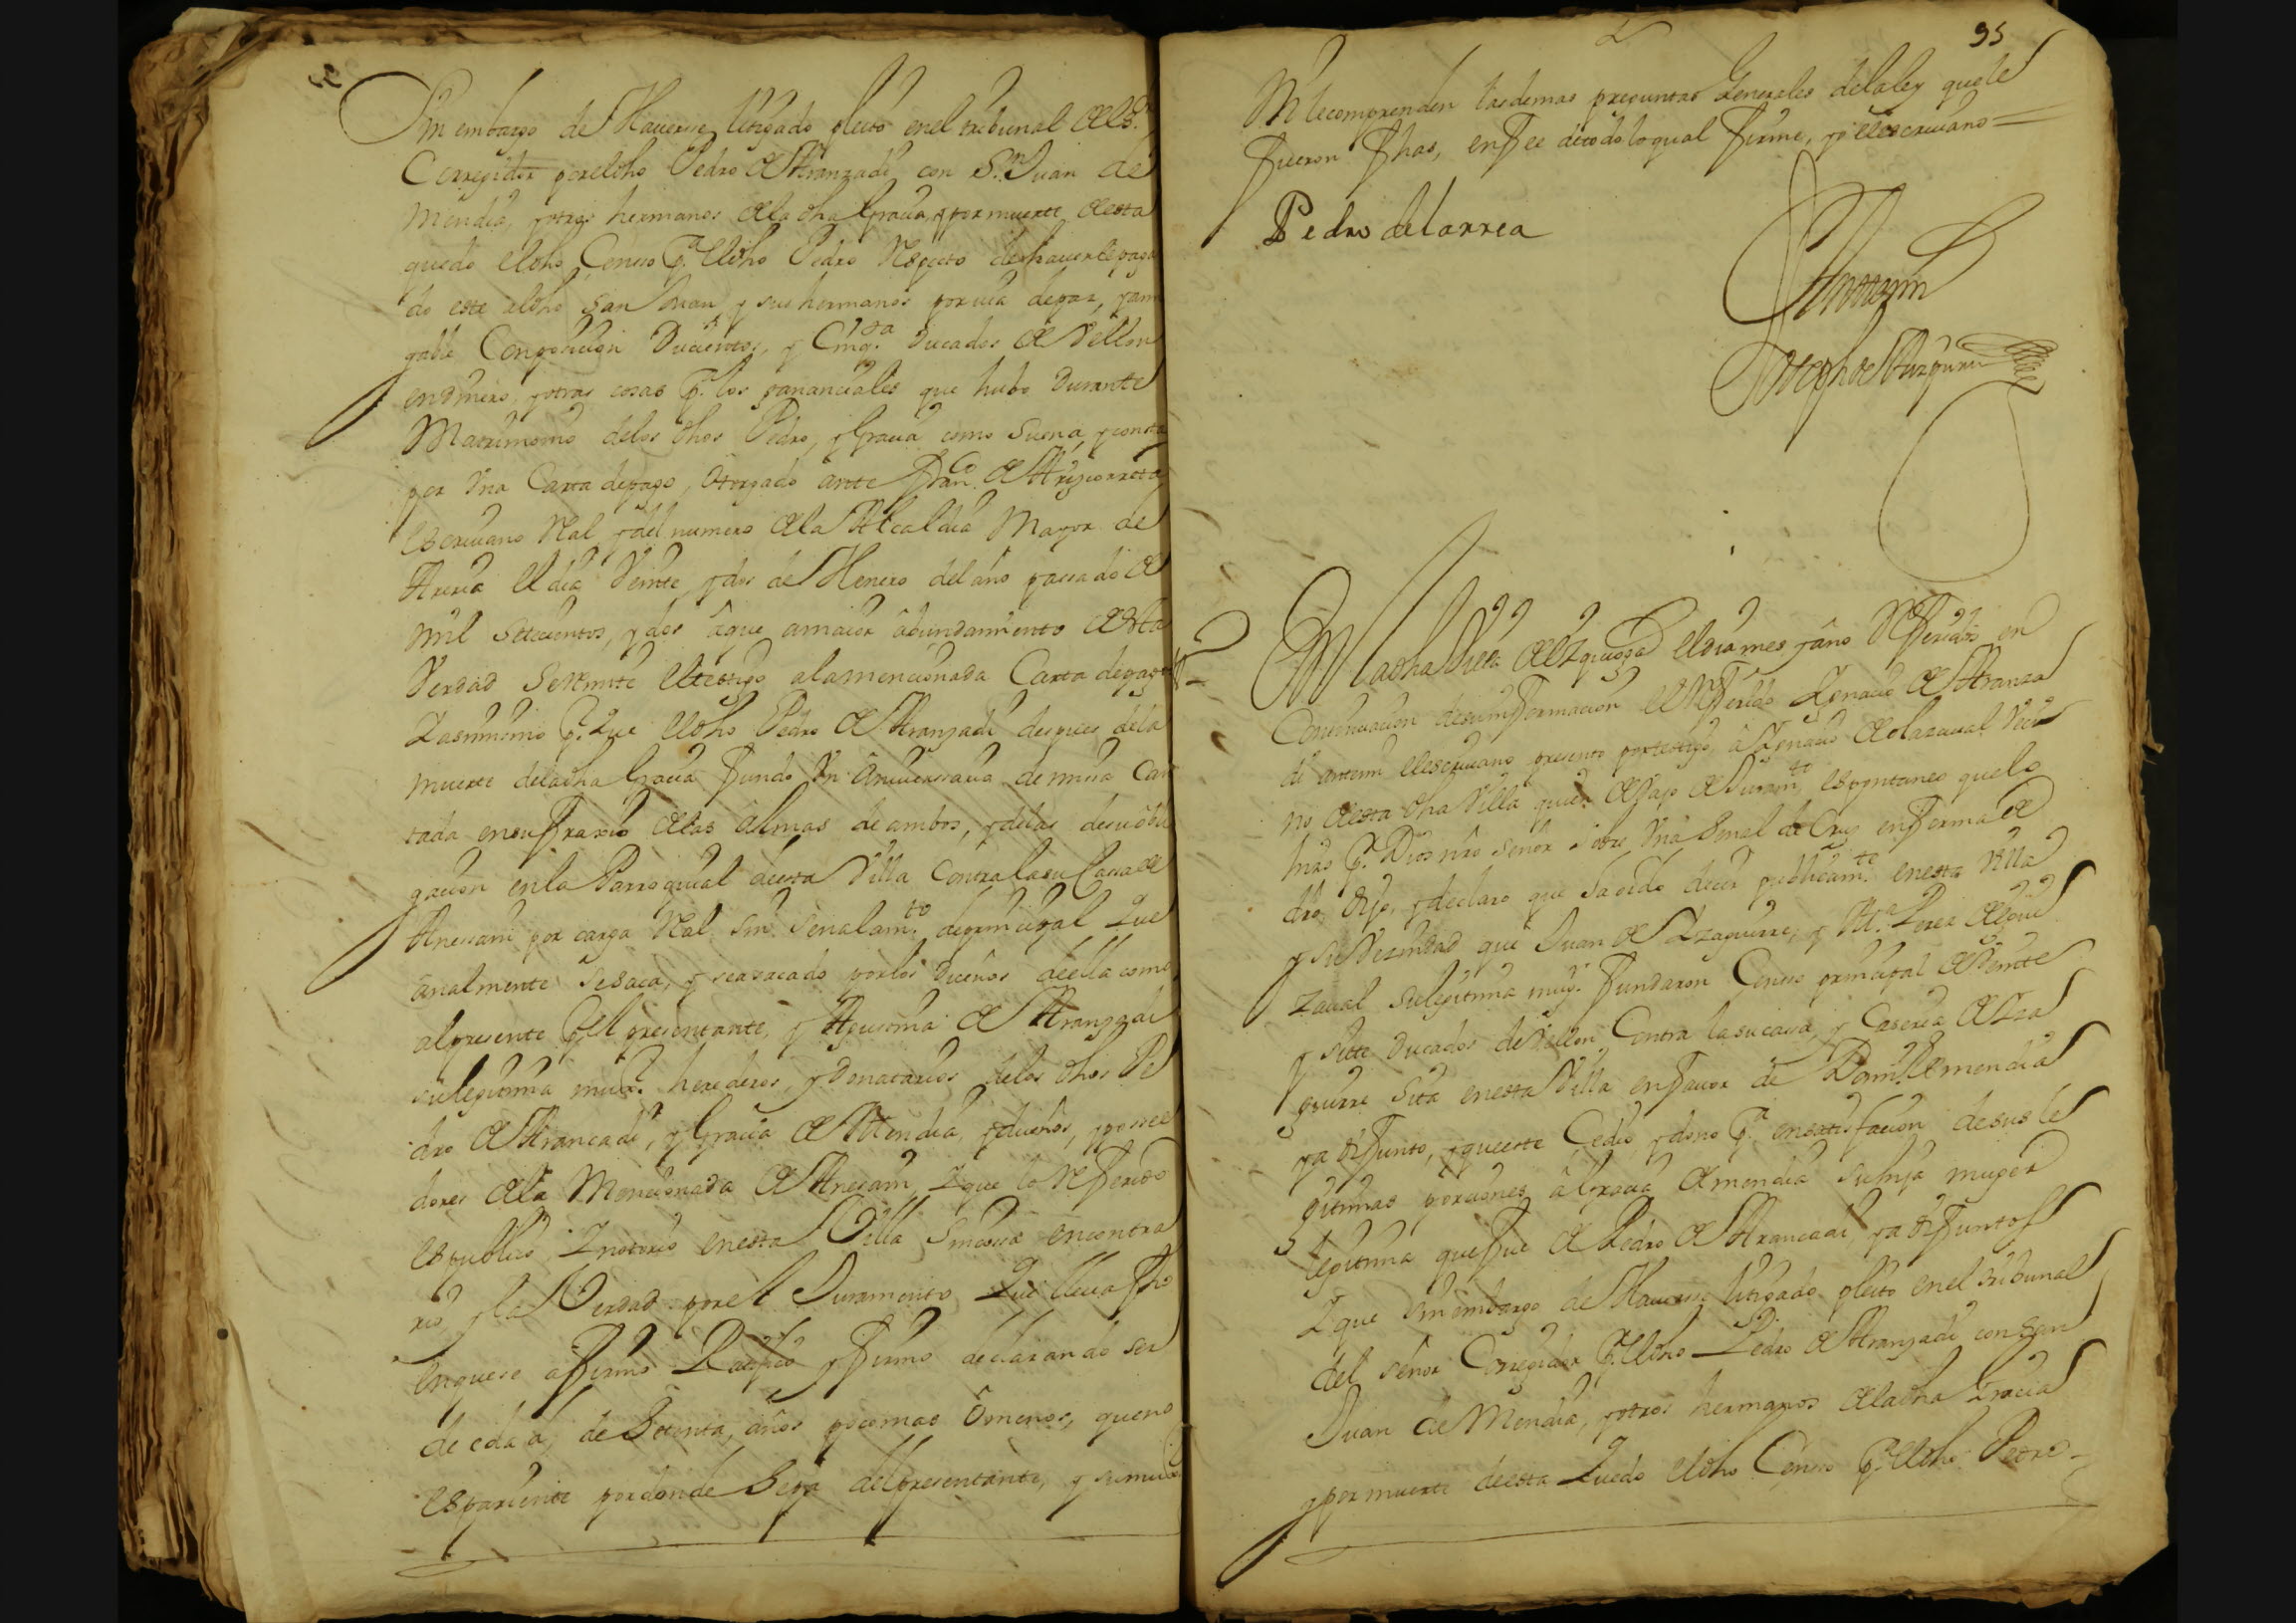 Sin embargo de Hauerse litigado pleito enel tribunal del S.r
Corregidor por el dho Pedro de Aranzadi con S.n Juan de
Mendia, y otros hermanos dela dha Gracia, y por muerte desta
quedo el dho Censo p.a el dho Pedro respecto de hauerle paga
do este al dho San Juan y sus hermanos por via de paz, y ami
gable Conposicion Ducientos, y Cinq.ta Ducados de Vellon
en dinero, y otras cosas p.r los gananciales que hubo durante
Matrimonio delos dhos Pedro, y Gracia como suena, y consta
por Vna Carta depago, otorgado ante Fran.co de Arizcorreta
escriuano Real y del numero dela Alcaldia Mayor de
Areria el dia Veinte, y dos de Henero del año passado de
mil Setecientos, y dos aque amaior abundamiento desta
Verdad Seremite el testigo alamencionada Carta depago
Y asimismo p.r que el dho Pedro de Aranzadi despues dela
muerte deladha Gracia fundo Vn Aniuersario de missa Can
tada ensufraxio delas Almas de ambos, y delas desu obli
gacion enla Parroquial desta Villa Contra lasu Casa de
Anessani por carga Real sin señalam.to deprincipal Que
anualmente sesaca, y seasacado porlos Dueños deella como
alpresente p.r el presentante, y Agustina de Aranzadi
sulegitima muger herederos, y Donatarios delos dhos Pe
dro de Arancadi, y Gracia de Mendia, y dueños, y posee
dores dela Mencionada de Anesani, Y que lo Referido
es publico, Y notorio enesta Villa sincosa encontra
rio y la Verdad por el Juramento Que lleua fho
enquese afirmo Ratifico y firmo declarando ser
de edad, de Setenta, años pocomas ô menos, queno
es pariente pordonde Sepa del presentante, y sumuger
95
Ni lecomprenden lasdemas preguntas Generales dela ley quele
fueron fhas, enfee detodo loqual firme, yo el escriuano =
Pedro de larrea
Ante mi
Joseph de Aizpuru
En ladha Villa de Ezquioga el dia mes y año Referidos en
Continuacion desuinformacion el Referido Ignacio de Aranza
di antemi el escriuano presento portestigo, â Ignacio de olazaual Veci
no desta dha Villa quien debajo de Juram.to espontaneo quelo
hizo p.r Dios nro señor sobre Vna señal de Cruz enforma de
dro, dijo, y declaro que ha oido decir publicam.te enesta Villa
y su Vezindad que Juan de Yzaguirre, y M.a Perez de oria
zaual sulegitima mug.r fundaron Censo principal de Veinte
y siete Ducados de Vellon Contra lasucasa, y Caseria de Yza
guirre sita enesta Villa enfauor de Dom.o de mendia
ya difunto, y queeste Cedio, y dono p.a ensatisfacion de sus le
gitimas porciones âGracia de mendia suhija muger
legitima quefue de Pedro de Arancadi, ya difuntos
Y que sin embargo de Hauerse litigado pleito enel tribunal
del señor Corregidor p.r el dho Pedro de Aranzadi con San
Juan de Mendia, y otros hermanos deladha Gracia
y por muerte deesta Quedo el dho Censo p.a el dho Pedro